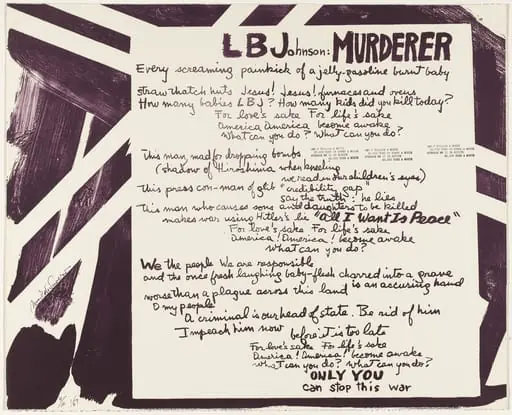 LBJohnson: MURDERER
Every screaming painkick of a jelly-gasoline burnt baby
straw thatch huts Jesus! Jesus! furnaces and ovens
How many babies LBJ? How many kids did you kill today?
For love's sake For life's sake
America America become awake
What can you do? What can you do?
This man, mad for dropping bombs
(shadow of Hiroshima when kneeling
we read in our children's eyes)
This press con-man of glib "credibility gap"
say the truth: he lies
This man who causes sons and daughters to be killed
makes war using Hitler's lie "All I Want Is Peace"
For love's sake For life's sake
America! America! become awake
What can you do?
We the people We are responsible
and the once fresh laughing baby-flesh charred into a grave
worse than a plague across this land is an accusing hand
O my people!
A criminal is our head of state. Be rid of him
Impeach him now before it is too late
For love's sake For life's sake
America! America! become awake
What can you do? What can you do?
ONLY YOU
can stop this war